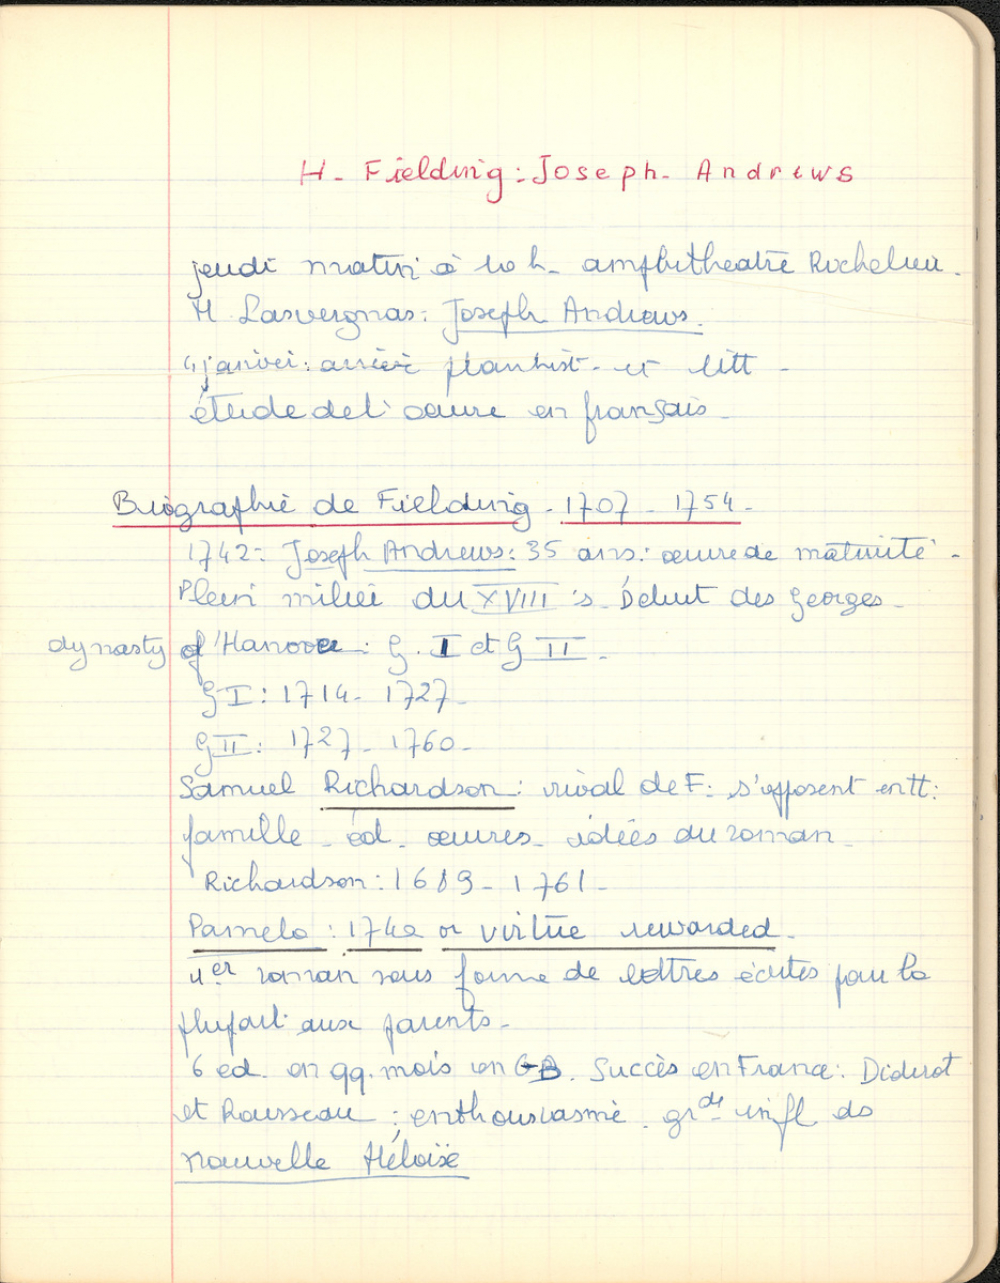 H. Fielding : Joseph. Andrews
jeudi matin à 10 h. amphitheatre Richelieu.
M Lasvergnas : Joseph Andrews.
4 janvier : arrière plan hist. et litt.
étude de l'oeuvre en français.
Biographie de Fielding. 1707 - 1754.
1742 : Joseph Andrews : 35 ans : œuvre de maturité.
Plein milieu du XVIII s. Début des Georges.
dynasty of Hanover : G. I et G II.
G I : 1714 - 1727.
G II : 1727 - 1760.
Samuel Richardson : rival de F. s'opposent en tt :
famille - éd. œuvres - idées du roman.
Richardson : 1689 - 1761 -
Pamela : 1740 or virtue rewarded.
1er roman sous forme de lettres écrites pour la
plupart aux parents.
6 éd. en qq. mois en GB. Succès en France : Diderot
et Rousseau : enthousiasme. grde infl ds
nouvelle Héloïse